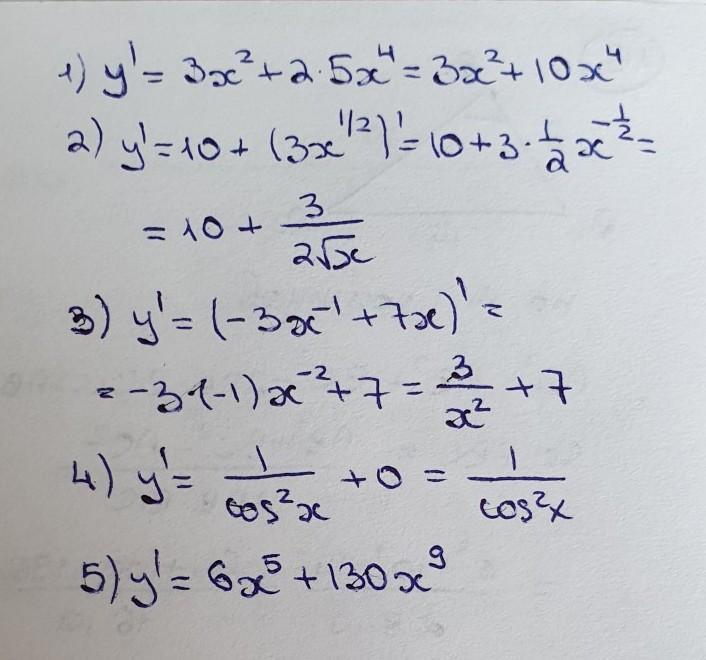 1) y' = 3x² + 2·5x⁴ = 3x² + 10x⁴
2) y' = 10 + (3x^{1/2})' = 10 + 3·\frac{1}{2}x^{-\frac{1}{2}} =
= 10 + \frac{3}{2\sqrt{x}}
3) y' = (-3x⁻¹ + 7x)' =
= -3·(-1)x⁻² + 7 = \frac{3}{x²} + 7
4) y' = \frac{1}{cos²x} + 0 = \frac{1}{cos²x}
5) y' = 6x⁵ + 130x⁹